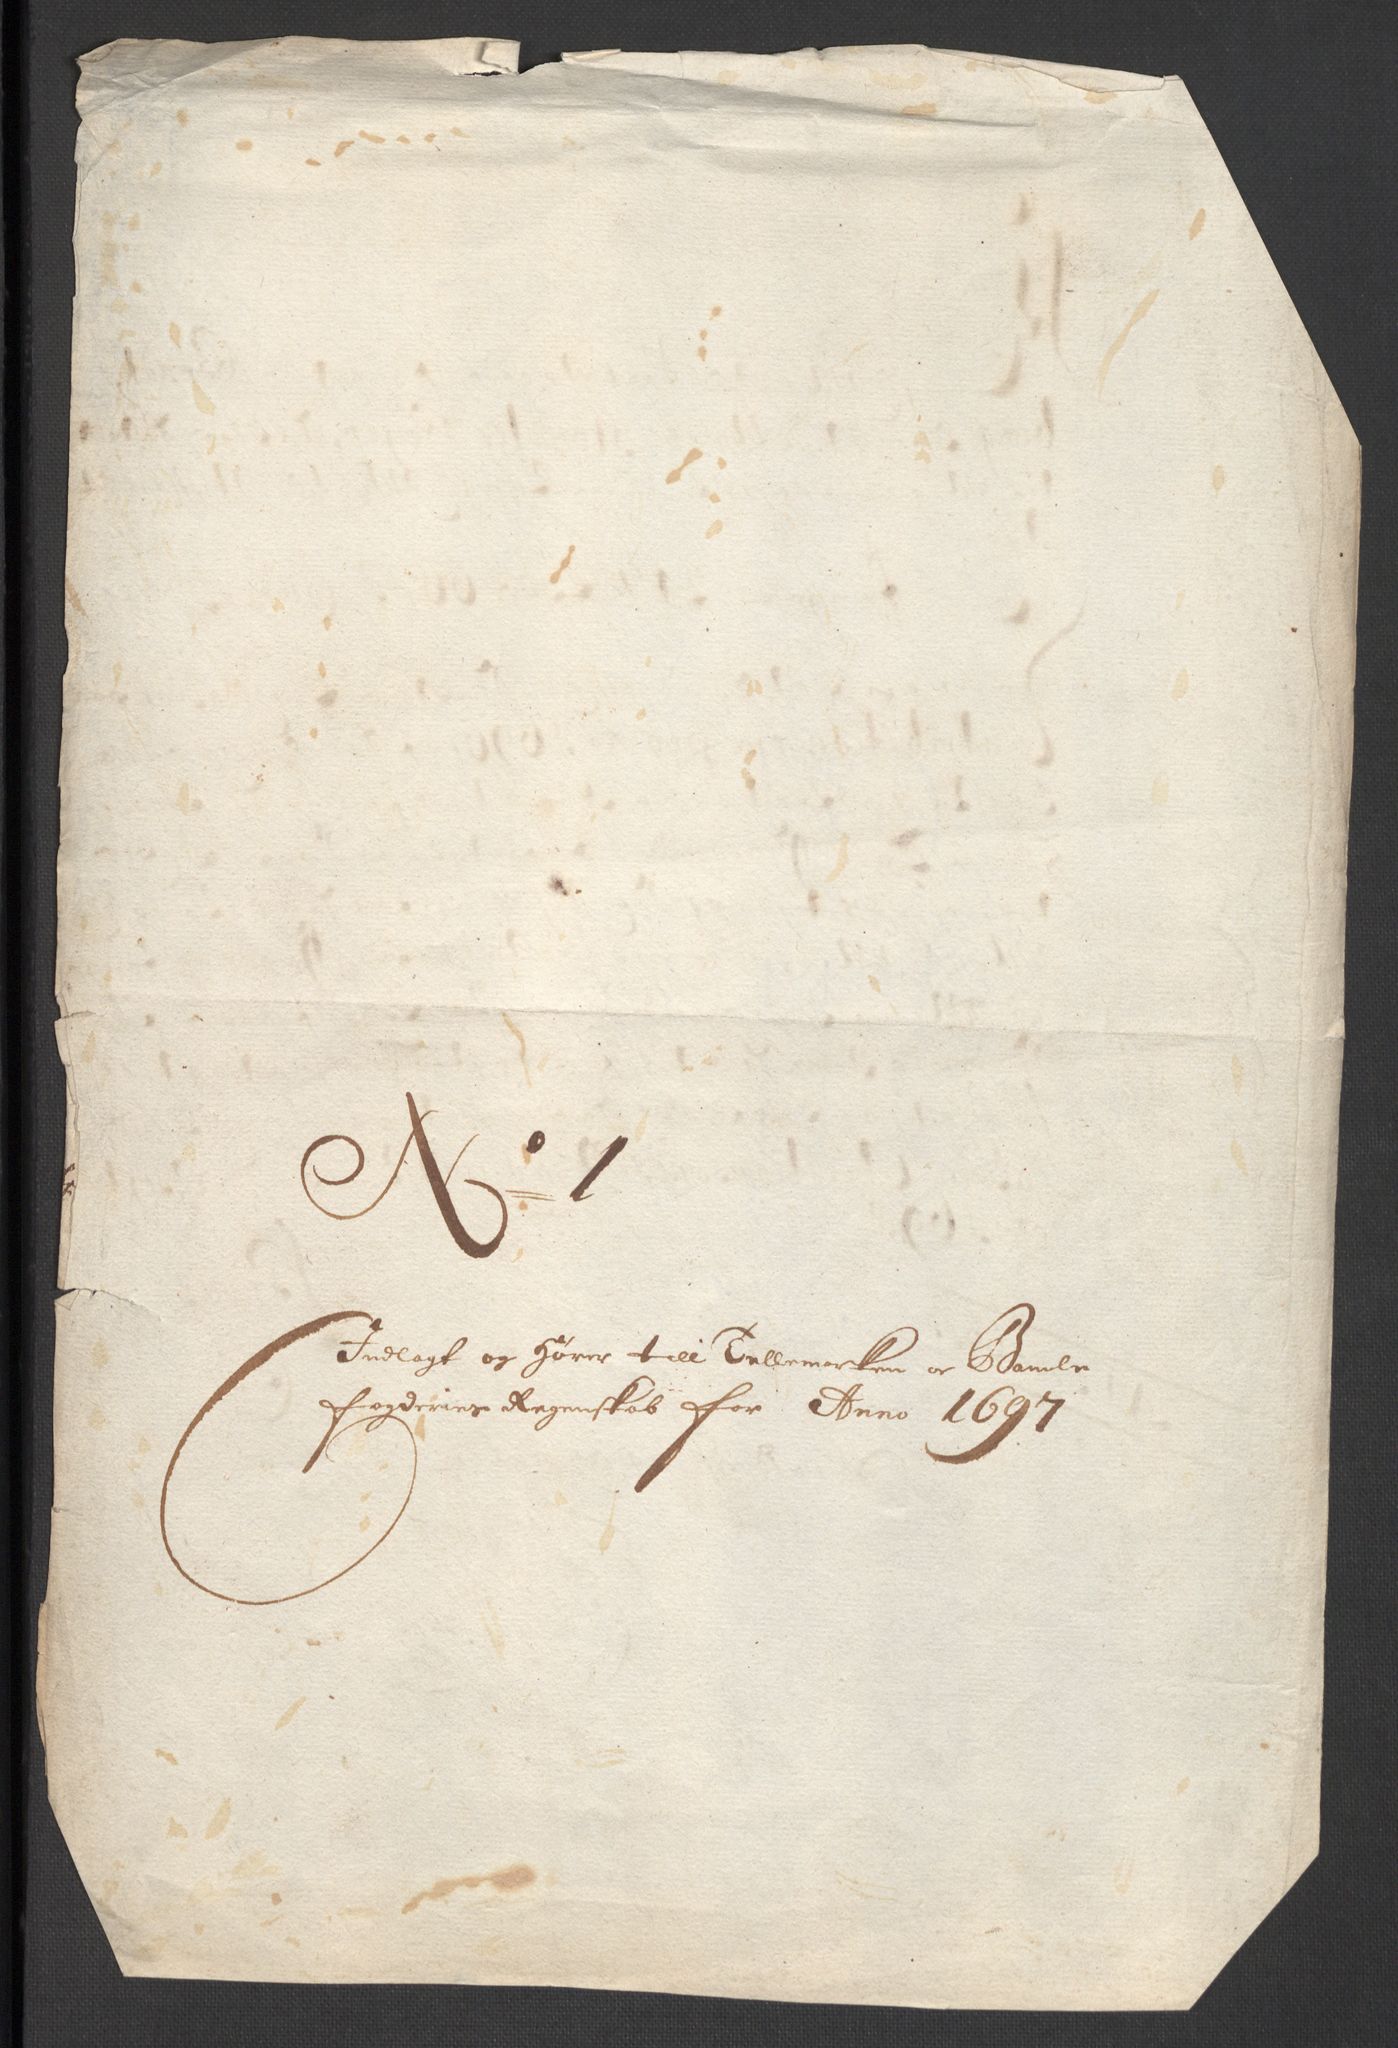 No 1
Indlagt og hører till Tellemarken oc Bamle
fogderies Regenskab for Anno 1697